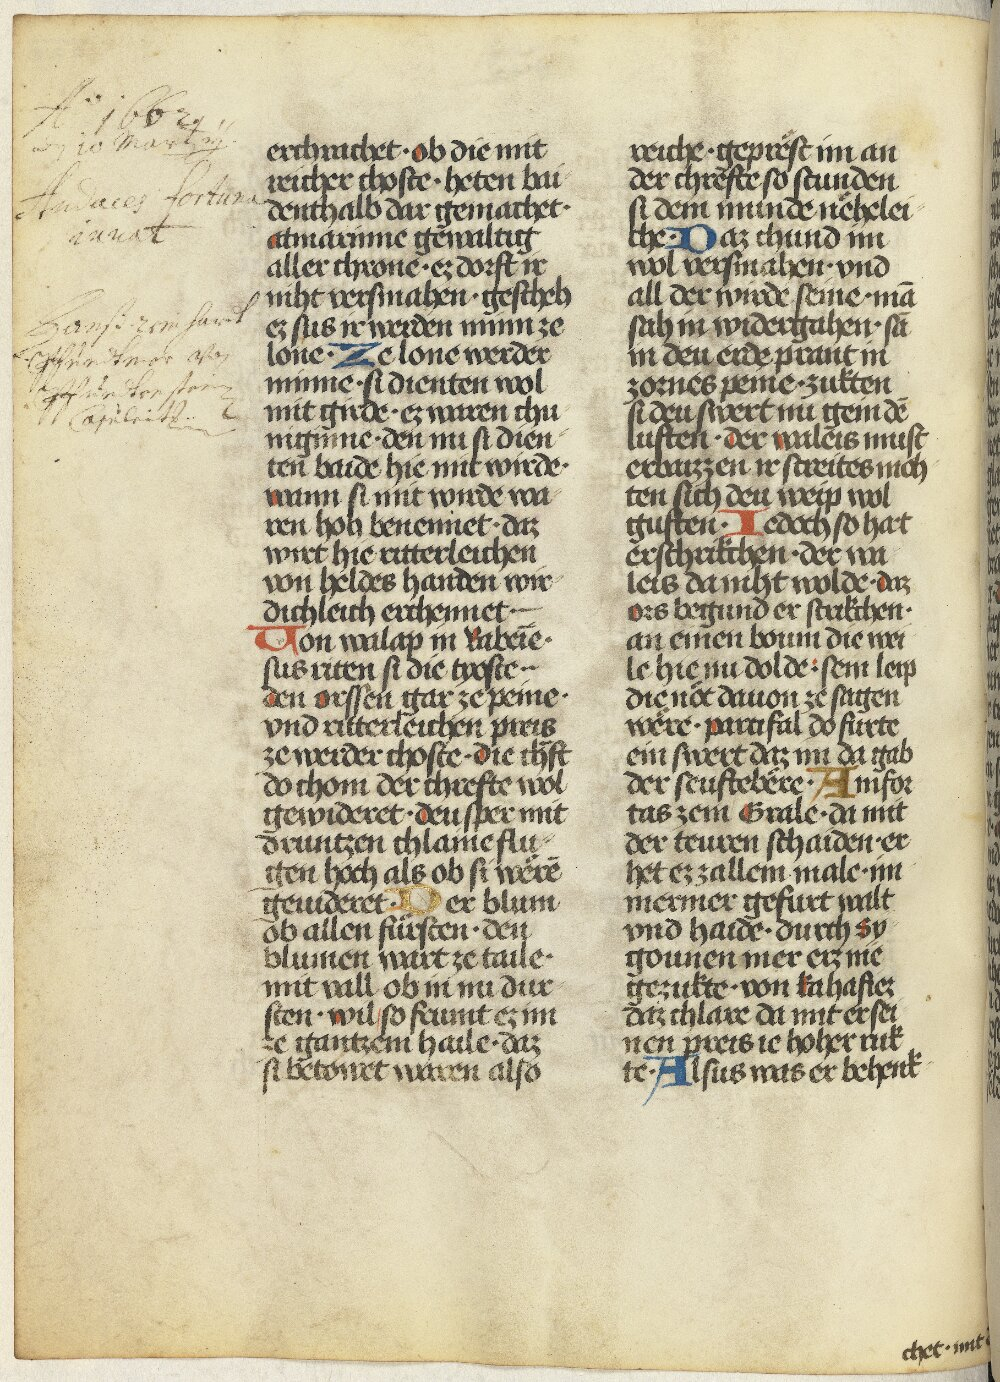 Ao 1662
10 Martij
Audaces fortuna
iuuat
erchrachet · ob die mit
reicher thoste · heten bai
denthalb dar gemachet ·
atmarinne gewaltig
aller chrone · ez dorft ir
niht versmahen · geschech
ez sus ir werden minn ze
lone · Ze lone werder
minne · si dienten wol
mit girde · ez waren chu
niginne · den nu si dien
ten baide hie mit wirde ·
wann si mit wirde wa
ren hoh benennet · daz
wirt hie ritterleichen
von heldes handen wir
dichleich erchennet ·
Von walap in rabeîe ·
sus riten si die tyoste ·
den orssen gar ze peine ·
vnd ritterleichen preis
ze werder thoste · die chrft
do chom der chrefte wol
gewideret · deu sper mit
druntzen chlaine flu
gen hoch als ob si wěrē
geuideret · Der blum
ob allen fürsten · den
blumen wart ze taile ·
mit vall ob in nu dur
sten · wil so frumt ez im
ze gantzem haile · daz
si betowet waren also
reiche · geprěst im an
der chrěfte so stunden
si dem munde něhelei
che · Daz chund im
wol versmahen · vnd
all der wirde seine · mā
sah in widergahen · sā
in deu erde prant in
zornes peine · zukten
si deu swert nu gein dē
luften · der waleis must
erbaizzen ir streites moh
ten sich deu weip wol
guften · Iedoch so hart
erschrikchen · der wa
leis da niht wolde · daz
ors begund er strikchen ·
an einen boum die wei
le hie nu dolde · sein leip
die nőt dauon ze sagen
wěre · partifal do furte
ein swert daz im da gab
der seufteběre · Amfor
tas zem Grale · da mit
der teuren schaiden · er
het ez zallem male · im
mermer gefurt walt
vnd haide · durch sy
gounen mer erz nie
gezukte · von kahafiez
daz chlare da mit er sei
nen preis ie hoher ruk
te · Alsus was er behenk
chet · mit